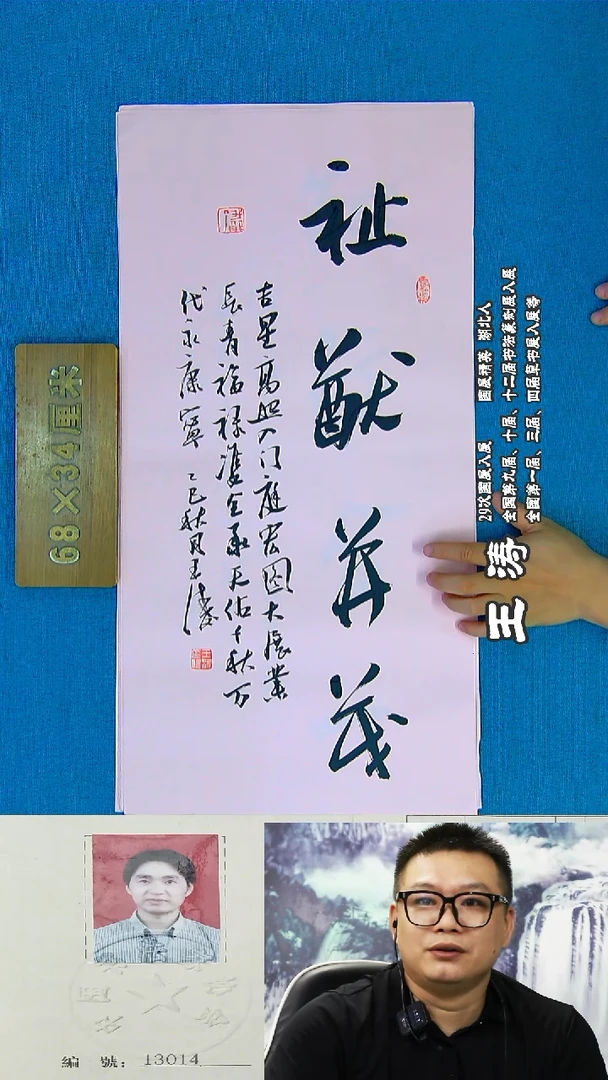 祉猷并茂
吉星高照入门庭宏图大展業
长青福禄双全承天佑千秋万
代永康寧 乙巳秋月王涛
68×34厘米
29次國展入展 國展精英 湖北人
全國第九届、十届、十二届书法篆刻展入展
全國第一届、三届、四届草书展入展等
王涛
編 號：13014